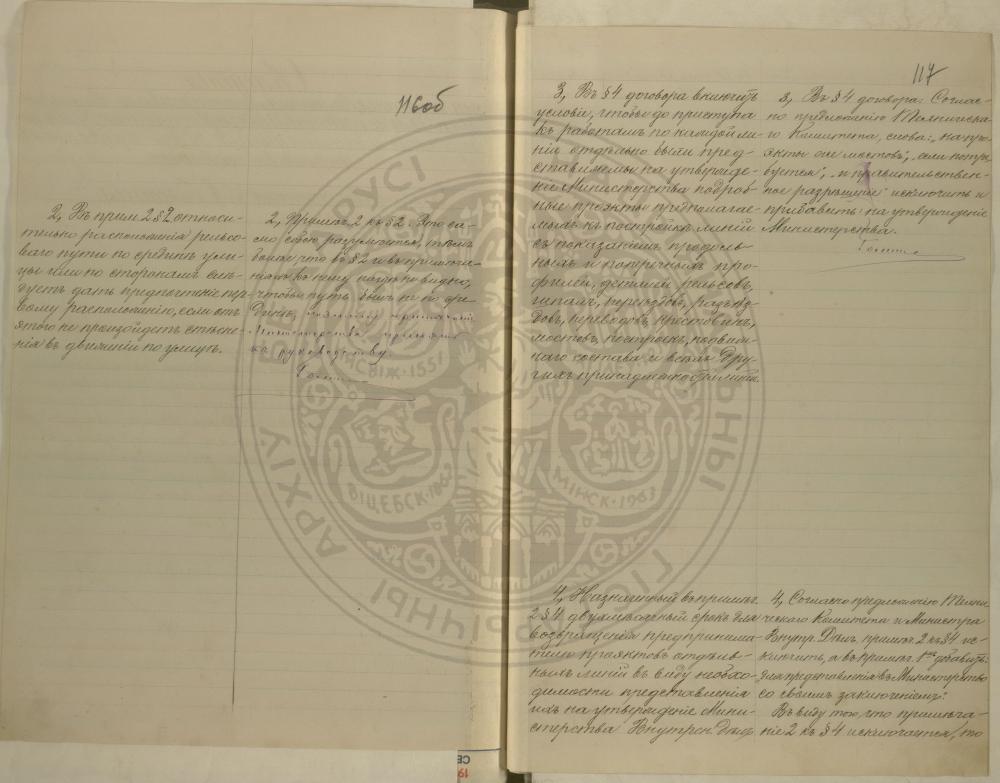 116об
2, Въ прим 2 § 2, относи-
тельно расположенія рельсо-
ваго пути по срединѣ ули-
цы или по сторонамъ слѣ-
дуетъ дать предпочтеніе пер-
вому расположенію, если отъ
этого не произойдетъ стѣсне-
нія въ движеніи по улицѣ.
2, Примѣч. 2 къ § 2. Это са-
мо собою разумѣется, тѣмъ
болѣе что въ § 2 и въ примѣча-
ніяхъ къ нему нигдѣ не видно,
чтобы путь былъ не по сре-
динѣ,
Министерства принять
къ руководству.
117
3, Въ § 4 договора включить
условіе, чтобы до приступа
къ работамъ по каждой ли-
ніи отдѣльно были пред-
ставляемы на утвержде-
ніе Министерства подроб-
ные проэкты предполагае-
мыхъ къ постройкѣ линій
съ показаніемъ продоль-
ныхъ и поперечныхъ про-
филей, деталей рельсовъ,
шпалъ, переѣздовъ, разъѣз-
довъ, переводовъ, крестовинъ,
мостовъ, построекъ, подвиж-
наго состава и всѣхъ дру-
гихъ принадлежностей пути.
3, Въ § 4 договора: Соглас-
но предложенію Техническа-
го Комитета, слова: „на про-
экты же мостовъ", „если потре-
буется", „и правительствен-
ное разрѣшеніе" исключить и
прибавить: на утвержденіе
Министерства.
4, Назначенный въ примѣч.
2 § 4 двухмѣсячный срокъ для
возвращенія предпринима-
телю проэктовъ отдѣль-
ныхъ линій въ виду необхо-
димости представленія
ихъ на утвержденіе Мини-
стерства Внутрен. Дѣлъ
4, Согласно предложенію Техни-
ческаго Комитета и Министра
Внутр. Дѣлъ, примѣч. 2 къ § 4 ис-
ключить, а въ примѣч. 1ое добавить:
для представленія въ Министерство
со своимъ заключеніемъ.
Въ виду того, что примѣча-
ніе 2 къ § 4 исключается, то